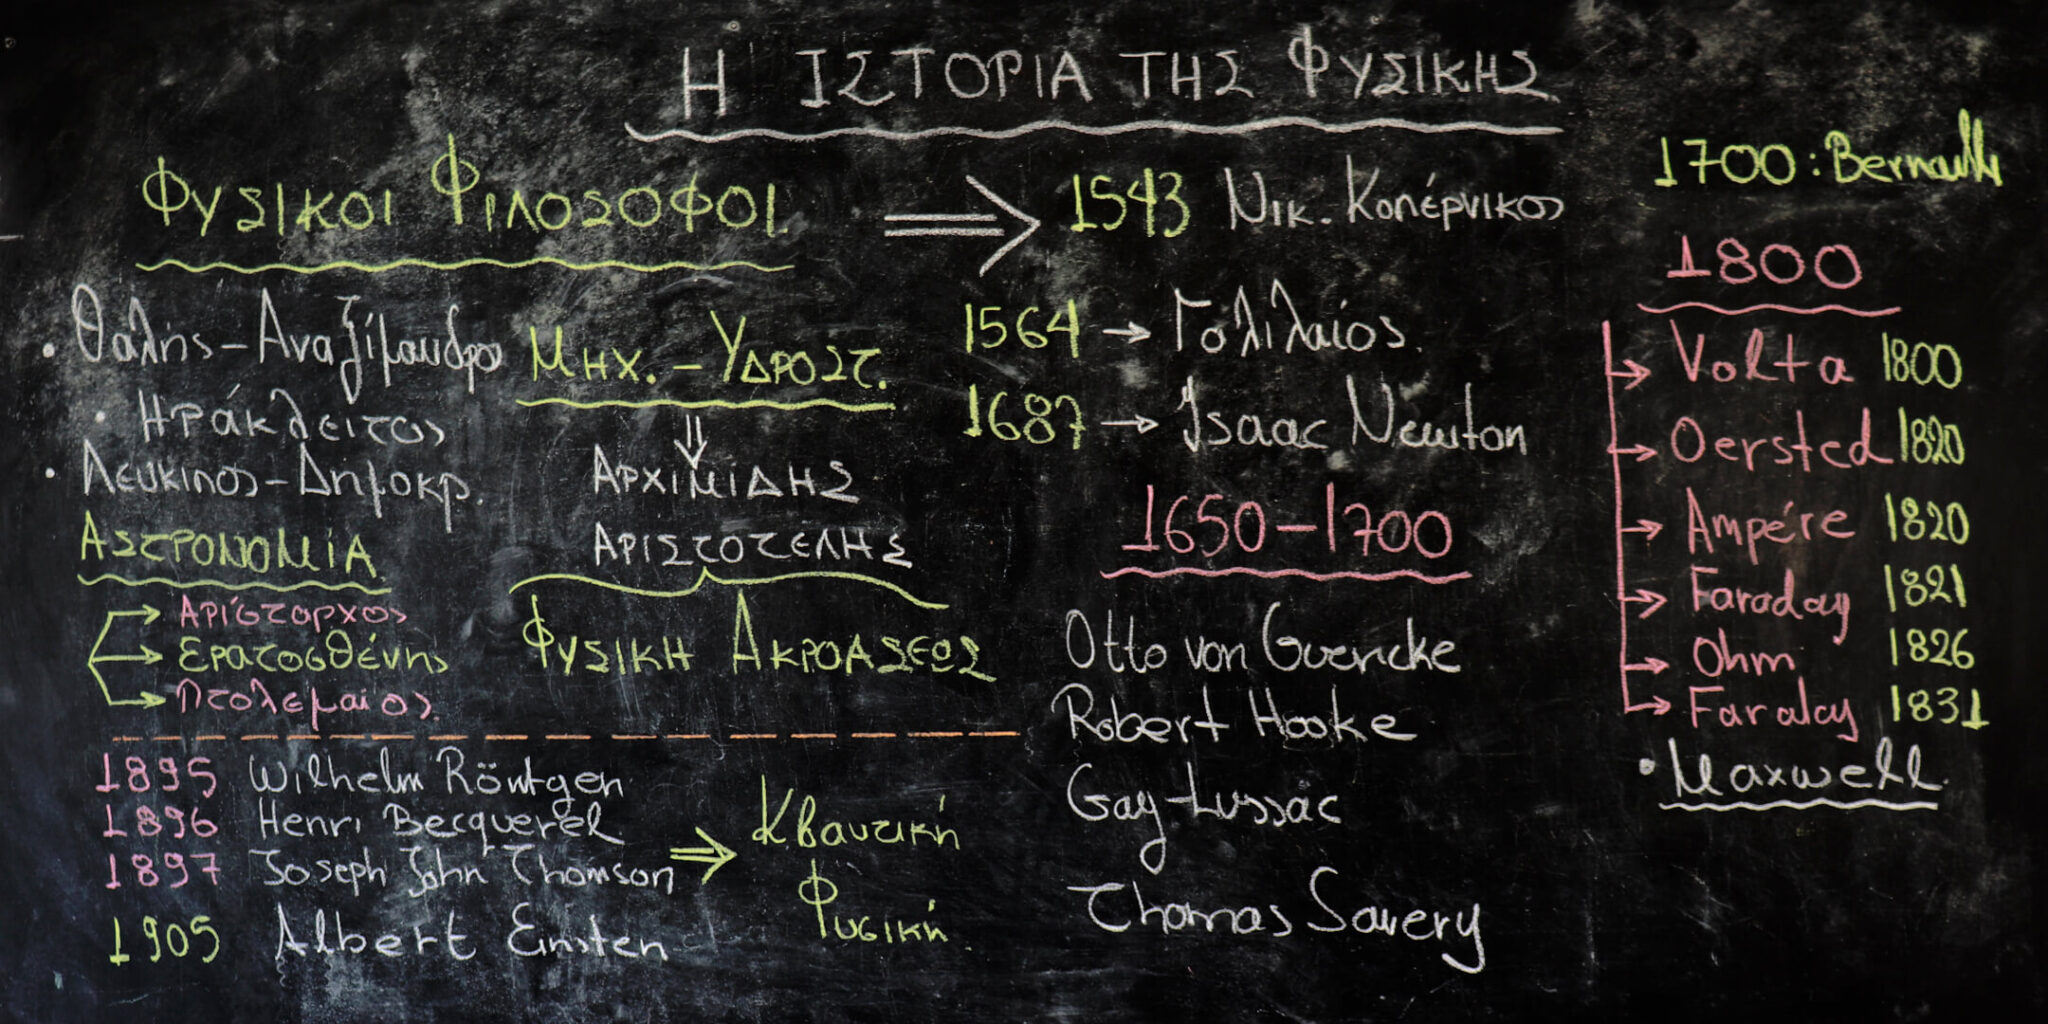 Η ΙΣΤΟΡΙΑ ΤΗΣ ΦΥΣΙΚΗΣ
ΦΥΣΙΚΟΙ ΦΙΛΟΣΟΦΟΙ
• Θαλής - Αναξίμανδρο
• Ηράκλειτος
• Λευκιπος - Δημοκρ.
ΑΣΤΡΟΝΟΜΙΑ
→ Αρίσταρχος
→ Ερατοσθένης
→ Πτολεμαίος.
ΜΗΧ. - ΥΔΡΟΣΤ.
⇓
ΑΡΧΙΜΙΔΗΣ
ΑΡΙΣΤΟΤΕΛΗΣ
ΦΥΣΙΚΗ ΑΚΡΟΑΣΕΩΣ
1895 Wilhelm Röntgen
1896 Henri Becquerel
1897 Joseph John Thomson
1905 Albert Einsten
⇒ Κβαντική
Φυσική
⇒ 1543 Νικ. Κοπέρνικος
1564 → Γαλιλαίος.
1687 → Isaac Newton
1650 - 1700
Otto von Guericke
Robert Hooke
Gay-Lussac
Thomas Savery
1700: Bernoulli
1800
→ Volta 1800
→ Oersted 1820
→ Ampére 1820
→ Faraday 1821
→ Ohm 1826
→ Faraday 1831
• Maxwell.